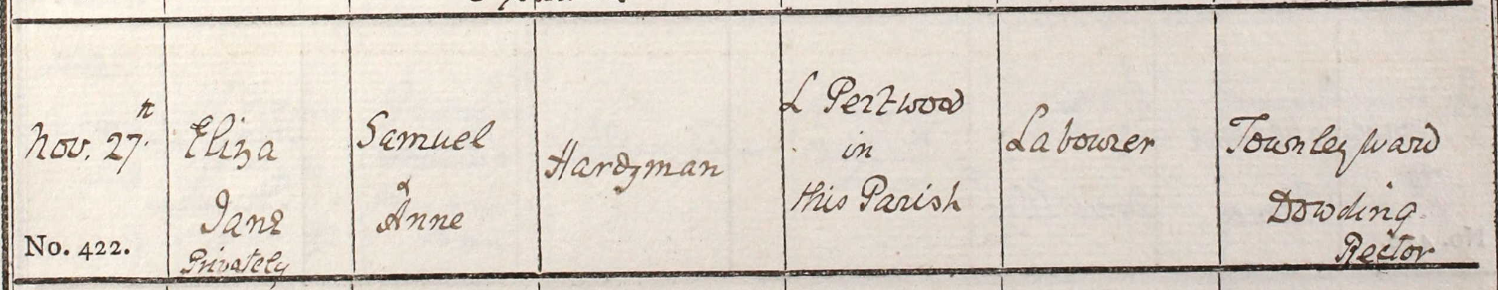 Nov. 27th
No. 422.
Eliza
Jane
Privately
Samuel
&
Anne
Hardyman
L Pertwood
in
this Parish
Labourer
Townley Ward
Dowding
Rector